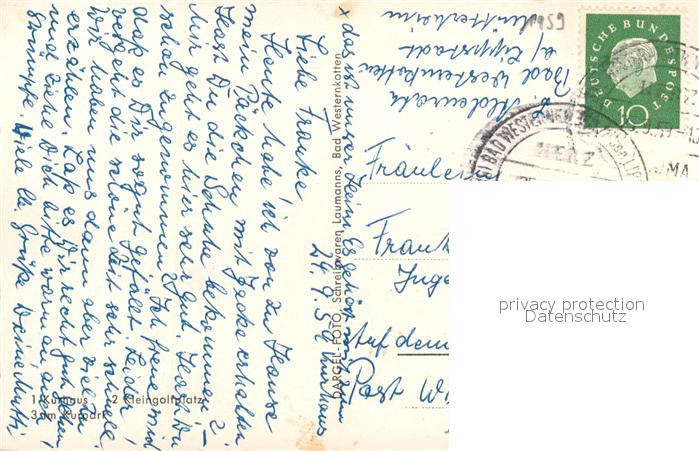 1959
DEUTSCHE BUNDESPOST
10
BAD WESTERNKOTTEN
HERZ
Bad Westernkotten
b/ Lippstadt
Fräulein
Frauke
Auf dem
Post
privacy protection
Datenschutz
24.9.59 Kurhaus
Liebe Frauke
Heute habe ich von zu Hause
mein Päckchen mit Jacke erhalten
Hast Du die Schuhe bekommen? –
Mir geht es hier sehr gut. Hast Du
schon zugenommen? Ich freue mich
daß es Dir so gut gefällt. Leider
vergeht die schöne Zeit sehr schnell.
Wir haben uns dann aber viel zu
erzählen. Laß es Dir recht gut gehen
und ziehe Dich bitte warm an auch
Strümpfe. Viele lb. Grüße Deine Mutti
x das ist unser
GARGEL-FOTO, Schreibwaren Laumanns, Bad Westernkotten
1 Kurhaus 2 Kleingolfplatz
3 am Kurpark